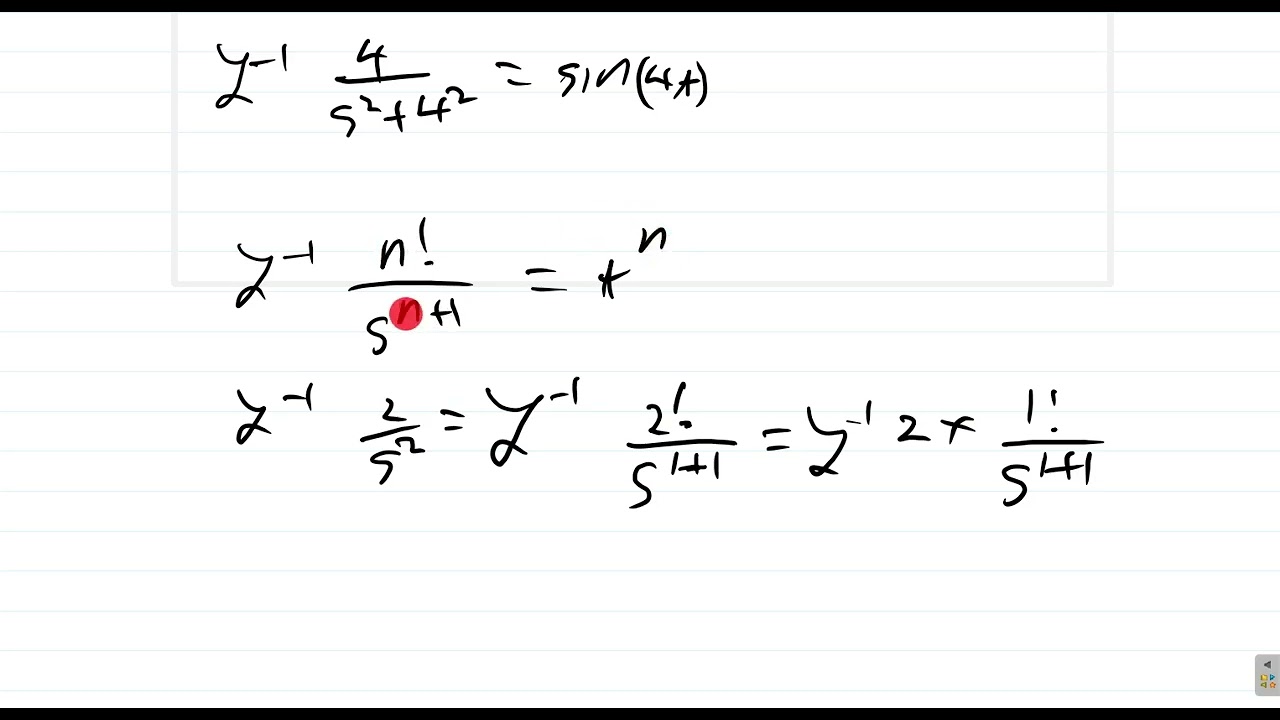 ℒ⁻¹ 4/(s²+4²) = sin(4t)
ℒ⁻¹ n!/s^(n+1) = t^n
ℒ⁻¹ 2/s² = ℒ⁻¹ 2!/s^(1+1) = ℒ⁻¹ 2 × 1!/s^(1+1)